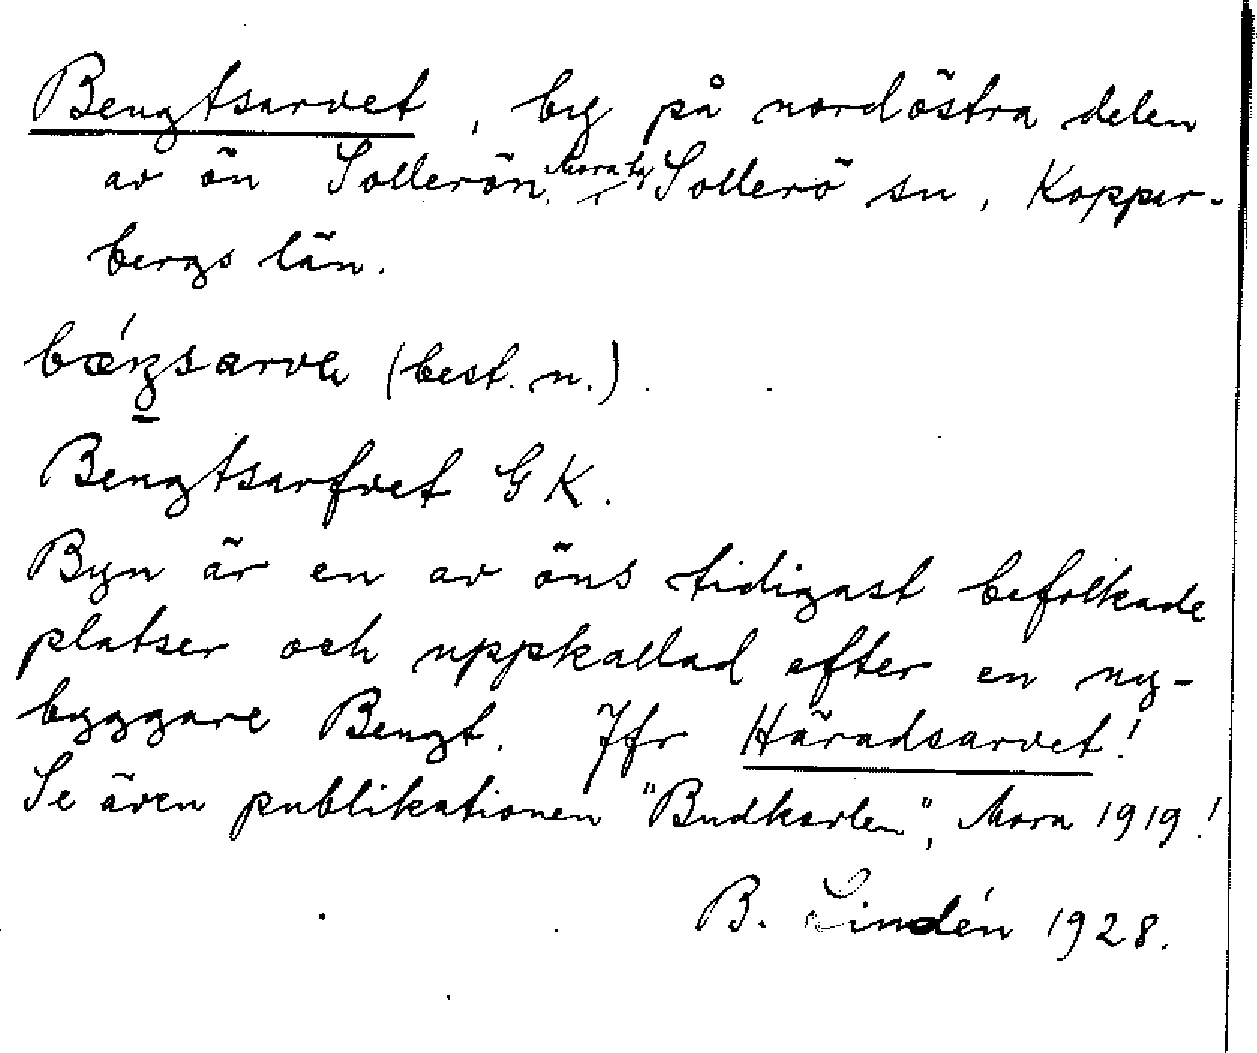 Bengtsarvet, by på nordöstra delen
av ön Sollerön, Mora tg Sollerö sn, Koppar-
bergs län.
bǽŋsarvɐ (best. n.).
Bengtsarfvet GK.
Byn är en av öns tidigast befolkade
platser och uppkallad efter en ny-
byggare Bengt. Jfr Häradsarvet!
Se även publikationen "Budkavlen", Mora 1919!
B. Lindén 1928.